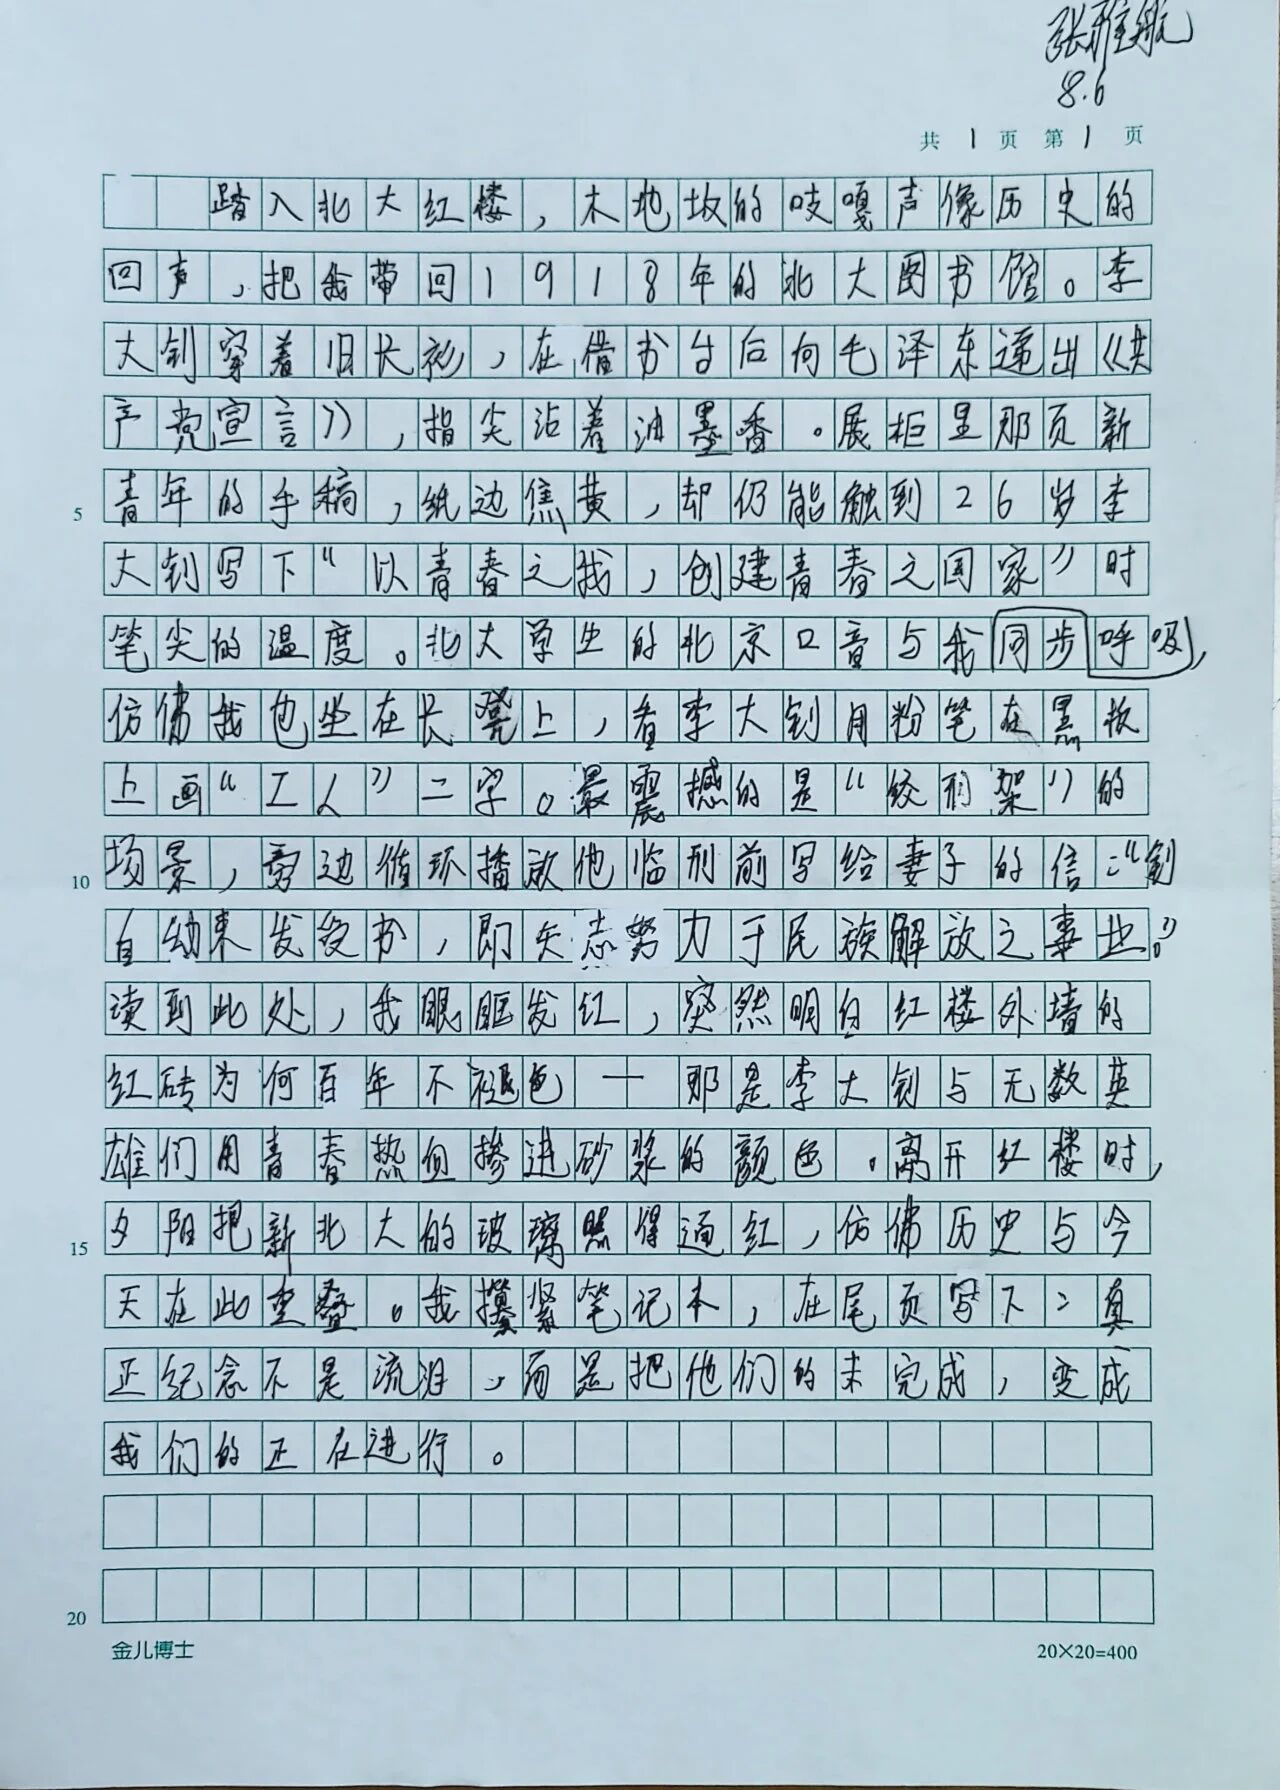 张雅航
8.6
共 1 页 第 1 页
踏入北大红楼，木地板的吱嘎声像历史的
回声，把我带回1918年的北大图书馆。李
大钊穿着旧长衫，在借书台后向毛泽东递出《共
产党宣言》，指尖沾着油墨香。展柜里那页新
青年的手稿，纸边焦黄，却仍能触到26岁李
5
大钊写下“以青春之我，创建青春之国家”时
笔尖的温度。北大学生的北京口音与我同步呼吸，
仿佛我也坐在长凳上，看李大钊用粉笔在黑板
上画“工人”二字。最震撼的是“绞刑架”的
场景，旁边循环播放他临刑前写给妻子的信：“钊
10
自幼束发受书，即矢志努力于民族解放之事业。”
读到此处，我眼眶发红，突然明白红楼外墙的
红砖为何百年不褪色——那是李大钊与无数英
雄们用青春热血掺进砂浆的颜色。离开红楼时，
夕阳把新北大的玻璃照得通红，仿佛历史与今
15
天在此重叠。我攥紧笔记本，在尾页写下：真
正纪念不是流泪，而是把他们的未完成，变成
我们的正在进行。
20
金儿博士
20×20=400